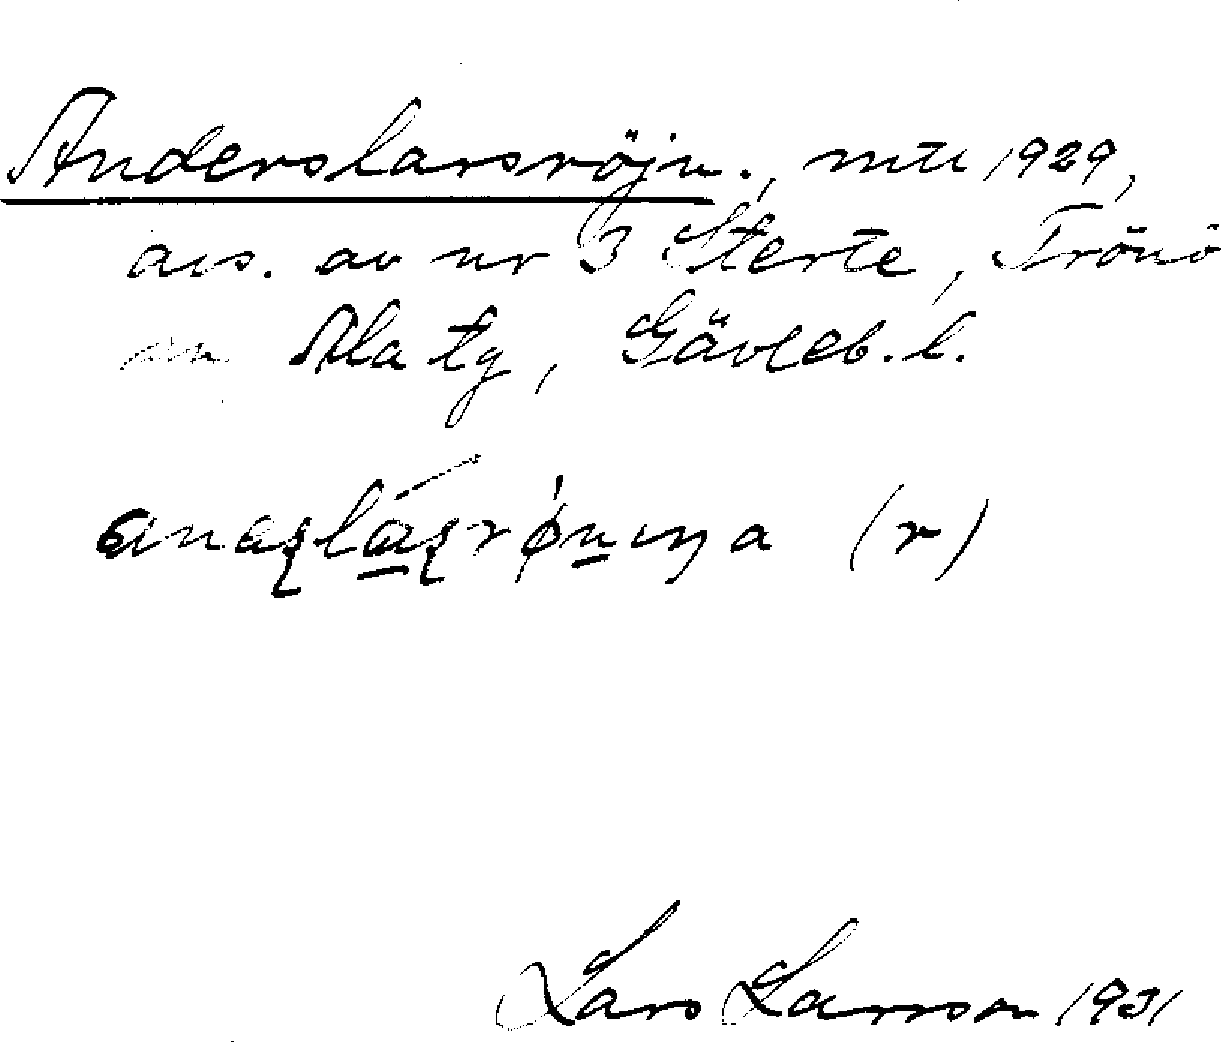 Anderslarsröjn., mtl 1929,
avs. av nr 3 Sterte, Trönö
sn Ala tg, Gävleb. l.
(r)
Lars Larsson 1931